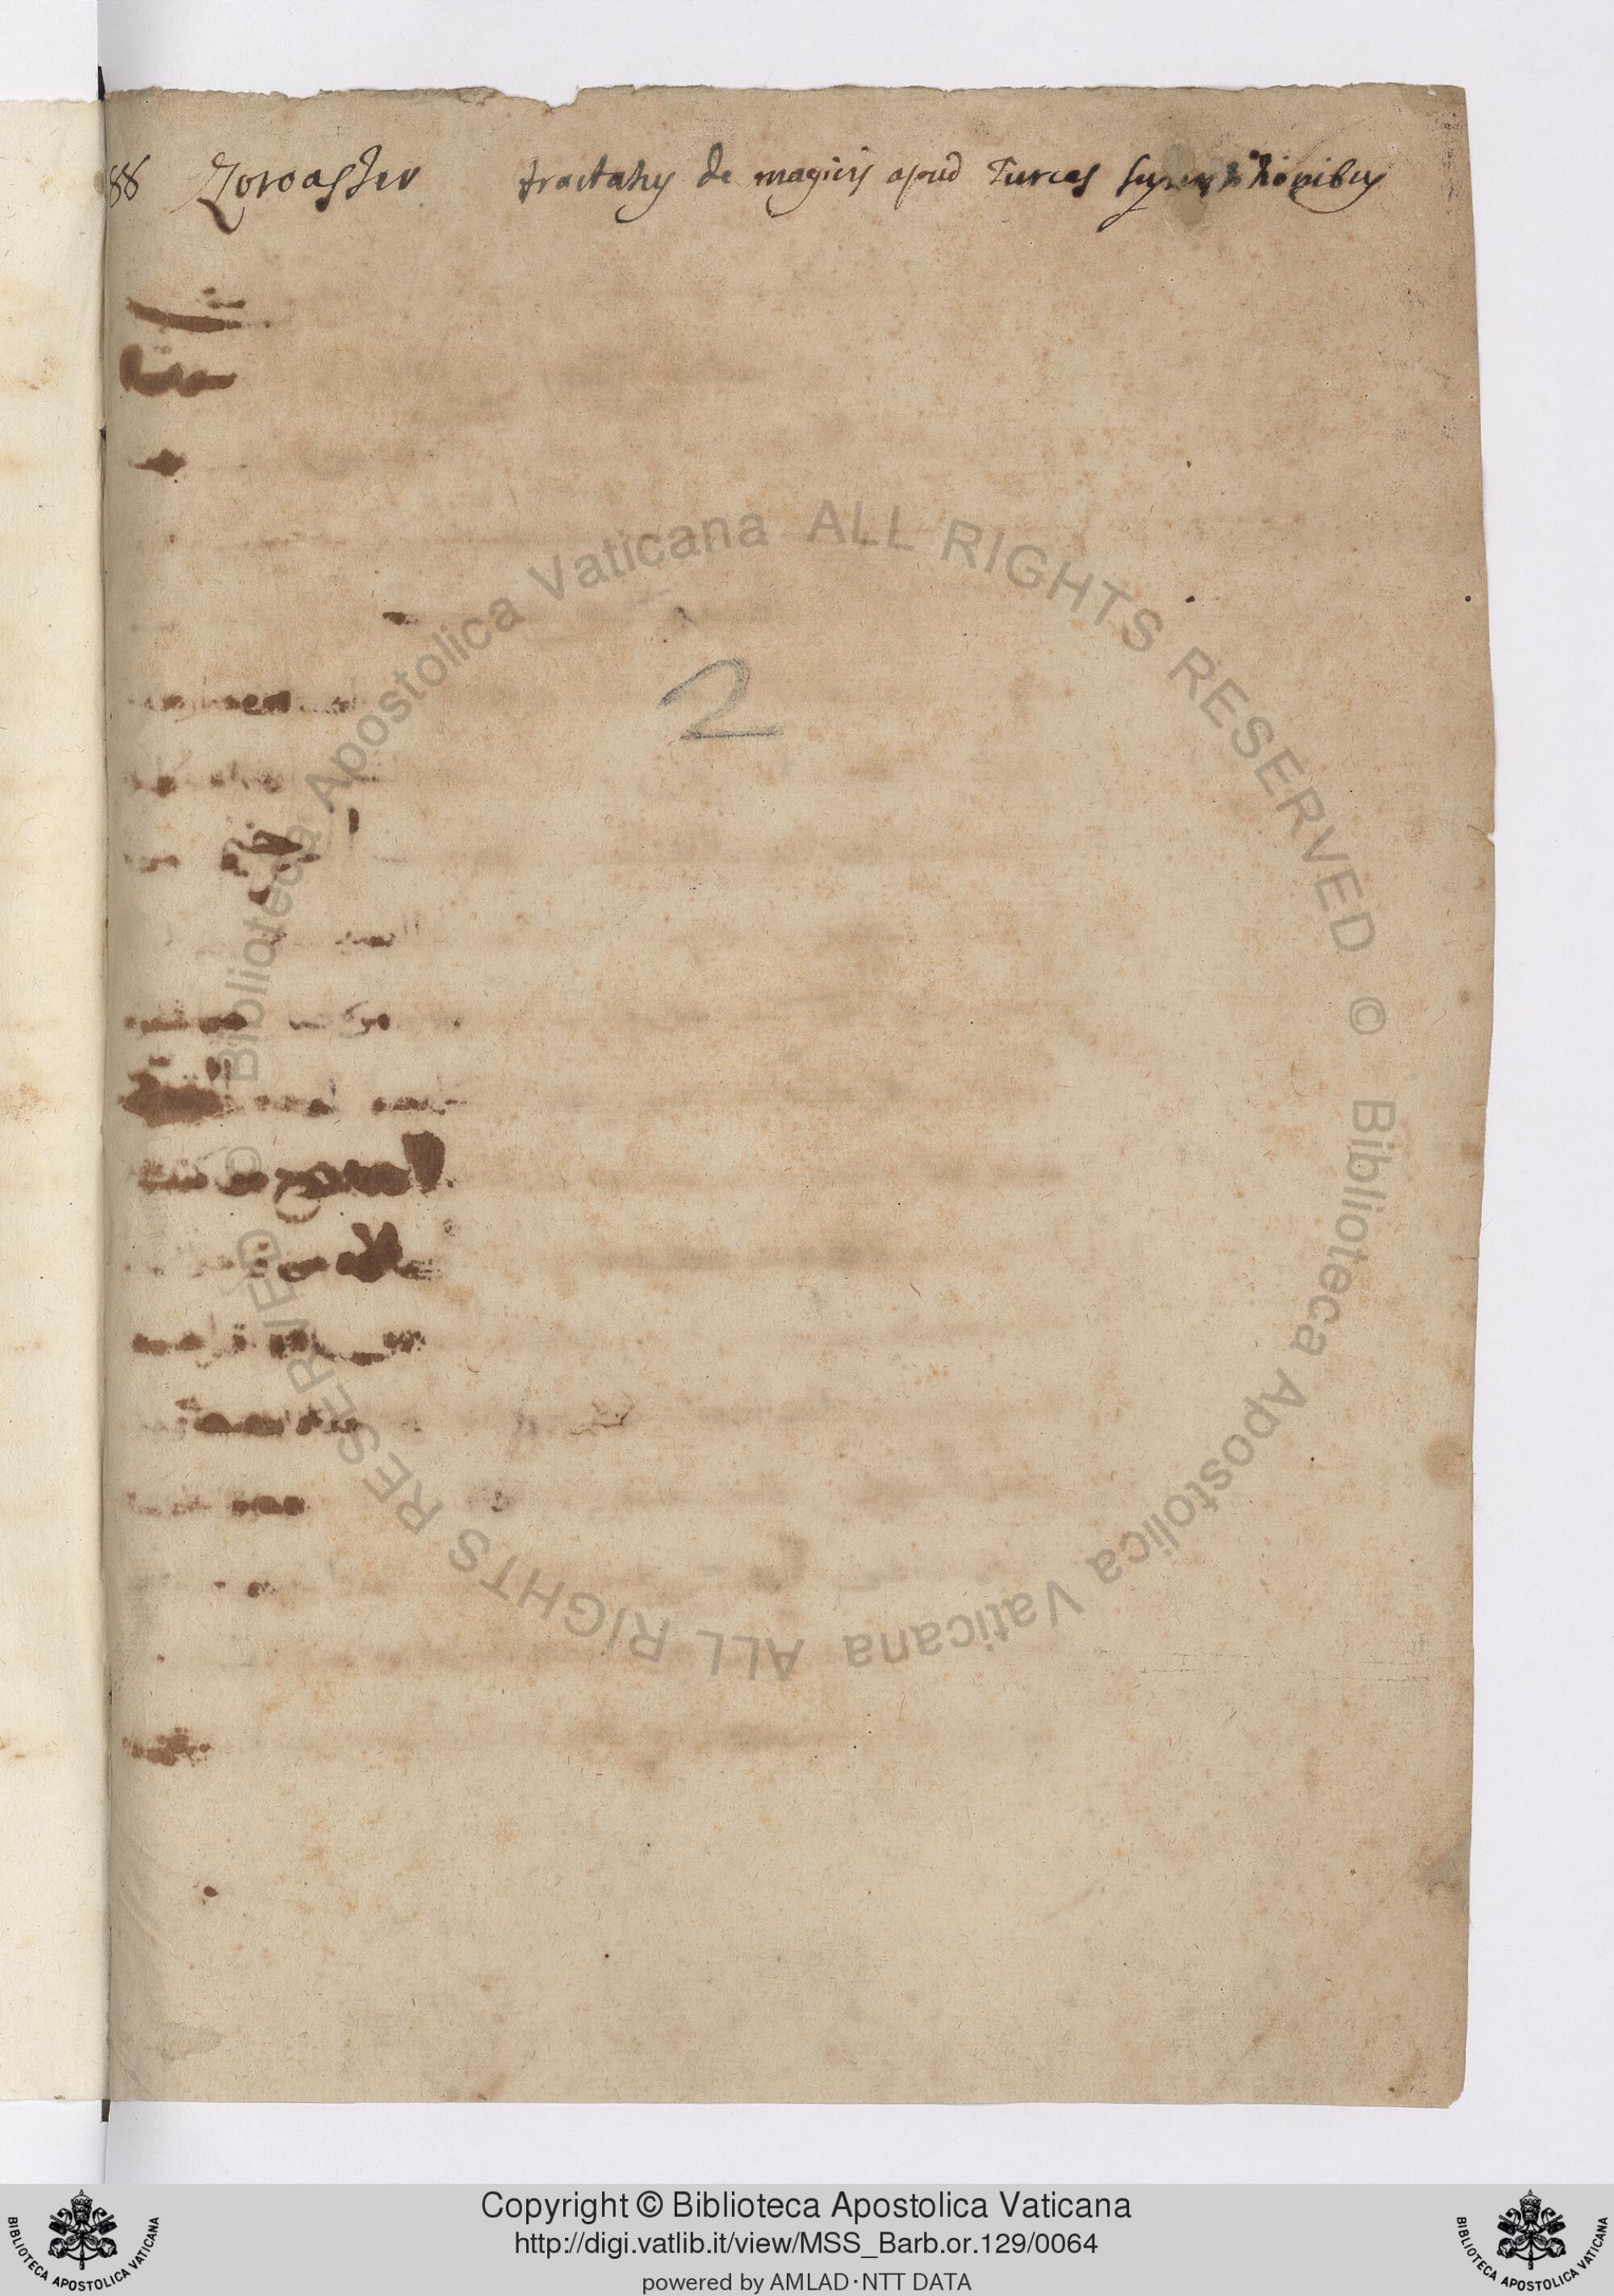 88 Zoroaster tractatus de magicis apud Turcas superstitionibus
2
© Biblioteca Apostolica Vaticana ALL RIGHTS RESERVED
© Biblioteca Apostolica Vaticana ALL RIGHTS RESERVED
Copyright © Biblioteca Apostolica Vaticana
http://digi.vatlib.it/view/MSS_Barb.or.129/0064
powered by AMLAD·NTT DATA
BIBLIOTECA APOSTOLICA VATICANA
BIBLIOTECA APOSTOLICA VATICANA